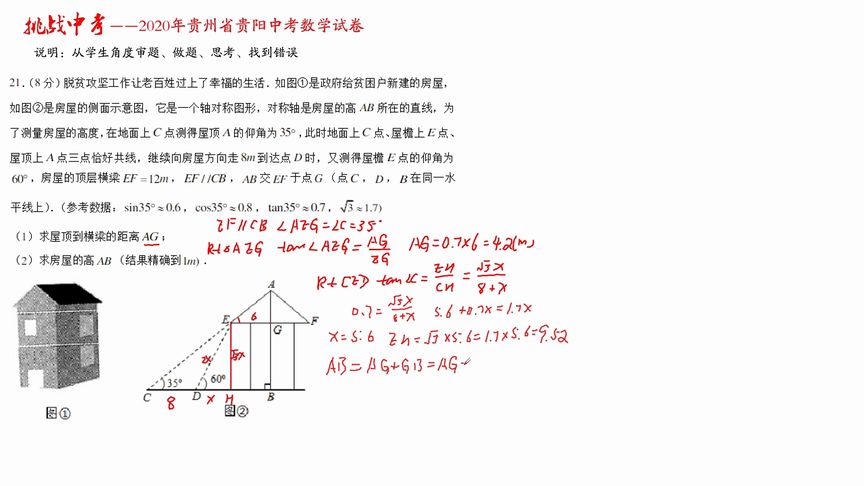 挑战中考——2020年贵州省贵阳中考数学试卷
说明：从学生角度审题、做题、思考、找到错误
21.（8分）脱贫攻坚工作让老百姓过上了幸福的生活．如图①是政府给贫困户新建的房屋，
如图②是房屋的侧面示意图，它是一个轴对称图形，对称轴是房屋的高 AB 所在的直线，为
了测量房屋的高度，在地面上 C 点测得屋顶 A 的仰角为 35°，此时地面上 C 点、屋檐上 E 点、
屋顶上 A 点三点恰好共线，继续向房屋方向走 8m 到达点 D 时，又测得屋檐 E 点的仰角为
60°，房屋的顶层横梁 EF =12m，EF//CB，AB 交 EF 于点 G（点 C，D，B 在同一水
平线上）．（参考数据：sin35°≈0.6，cos35°≈0.8，tan35°≈0.7，√3≈1.7）
（1）求屋顶到横梁的距离 AG；
（2）求房屋的高 AB（结果精确到1m）．
EF//CB ∠AEG=∠C=35°
Rt△AEG tan∠AEG=AG/EG AG=0.7×6=4.2(m)
Rt△CED tan∠C=EH/CH=√3x/8+x
0.7=√3x/8+x 5.6+0.7x=1.7x
x=5.6 EH=√3×5.6=1.7×5.6=9.52
AB=AG+GB=AG+
A
E 6 F
G
2x √3x
35° 60°
C D H B
8 x
图①
图②